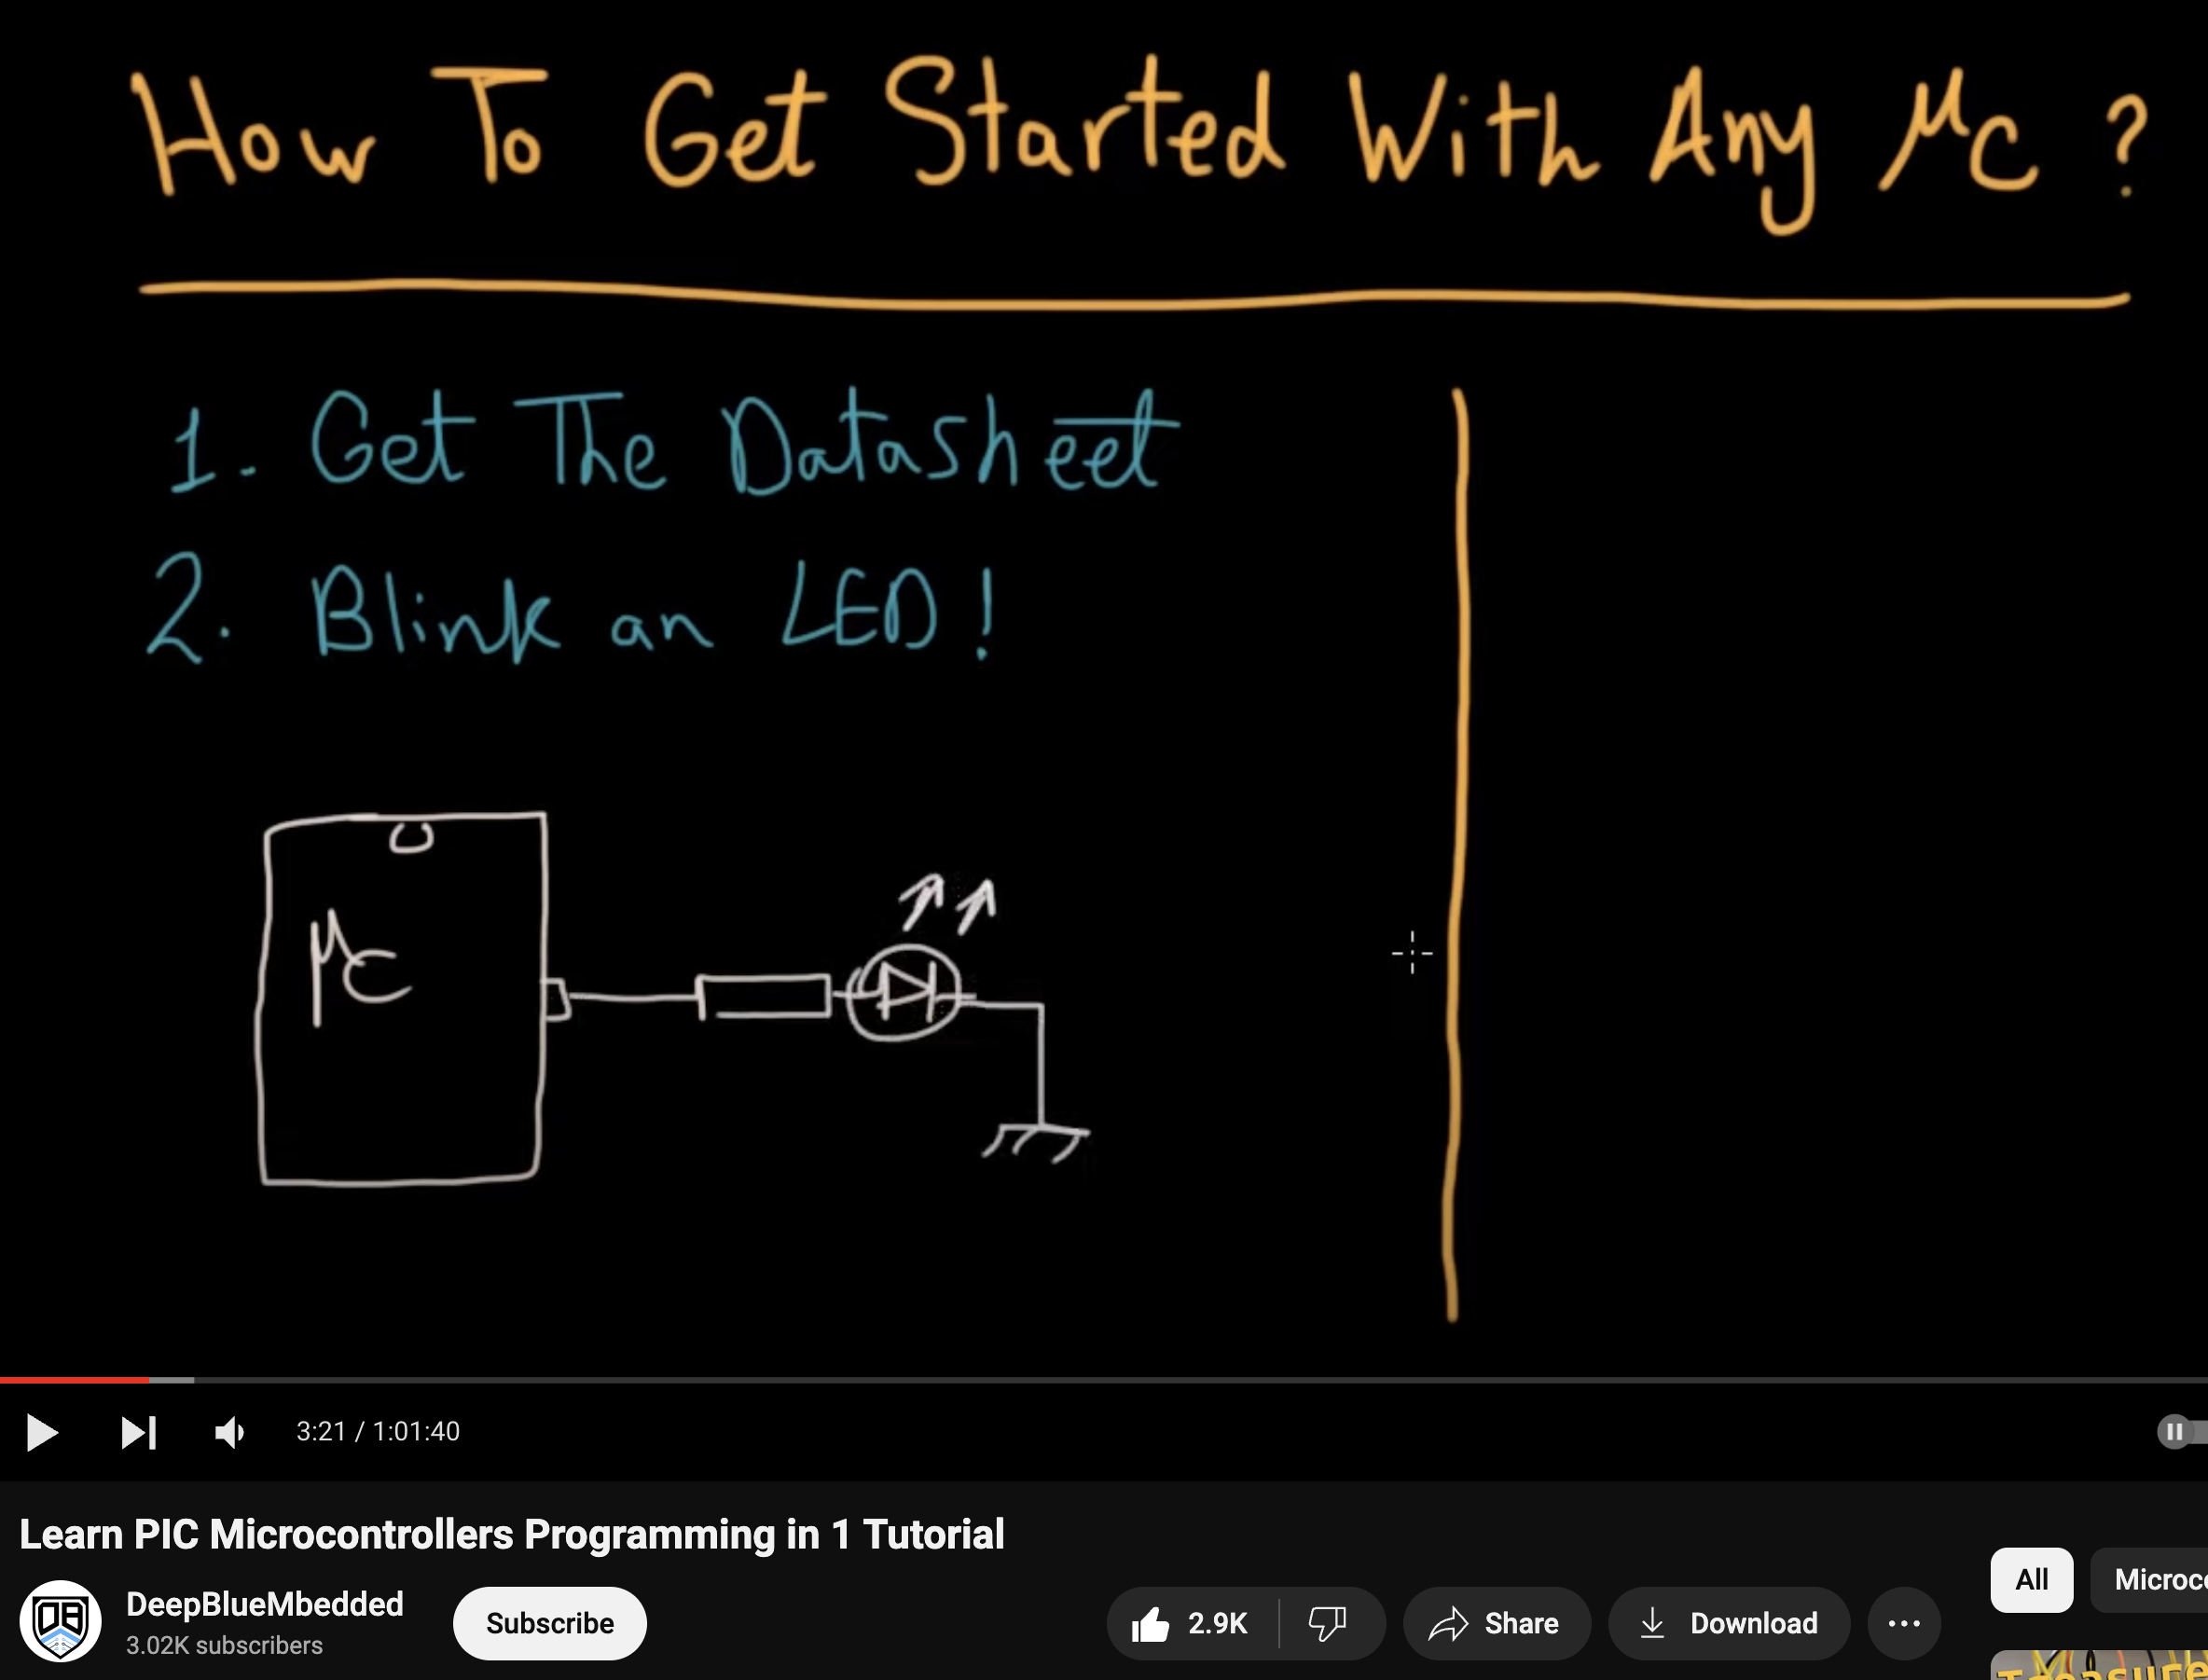 How To Get Started With Any μc ?
1. Get The Datasheet
2. Blink an LED!
μc
3:21 / 1:01:40
Learn PIC Microcontrollers Programming in 1 Tutorial
DeepBlueMbedded
3.02K subscribers
Subscribe
2.9K
Share
Download
All
Microco
Treasure